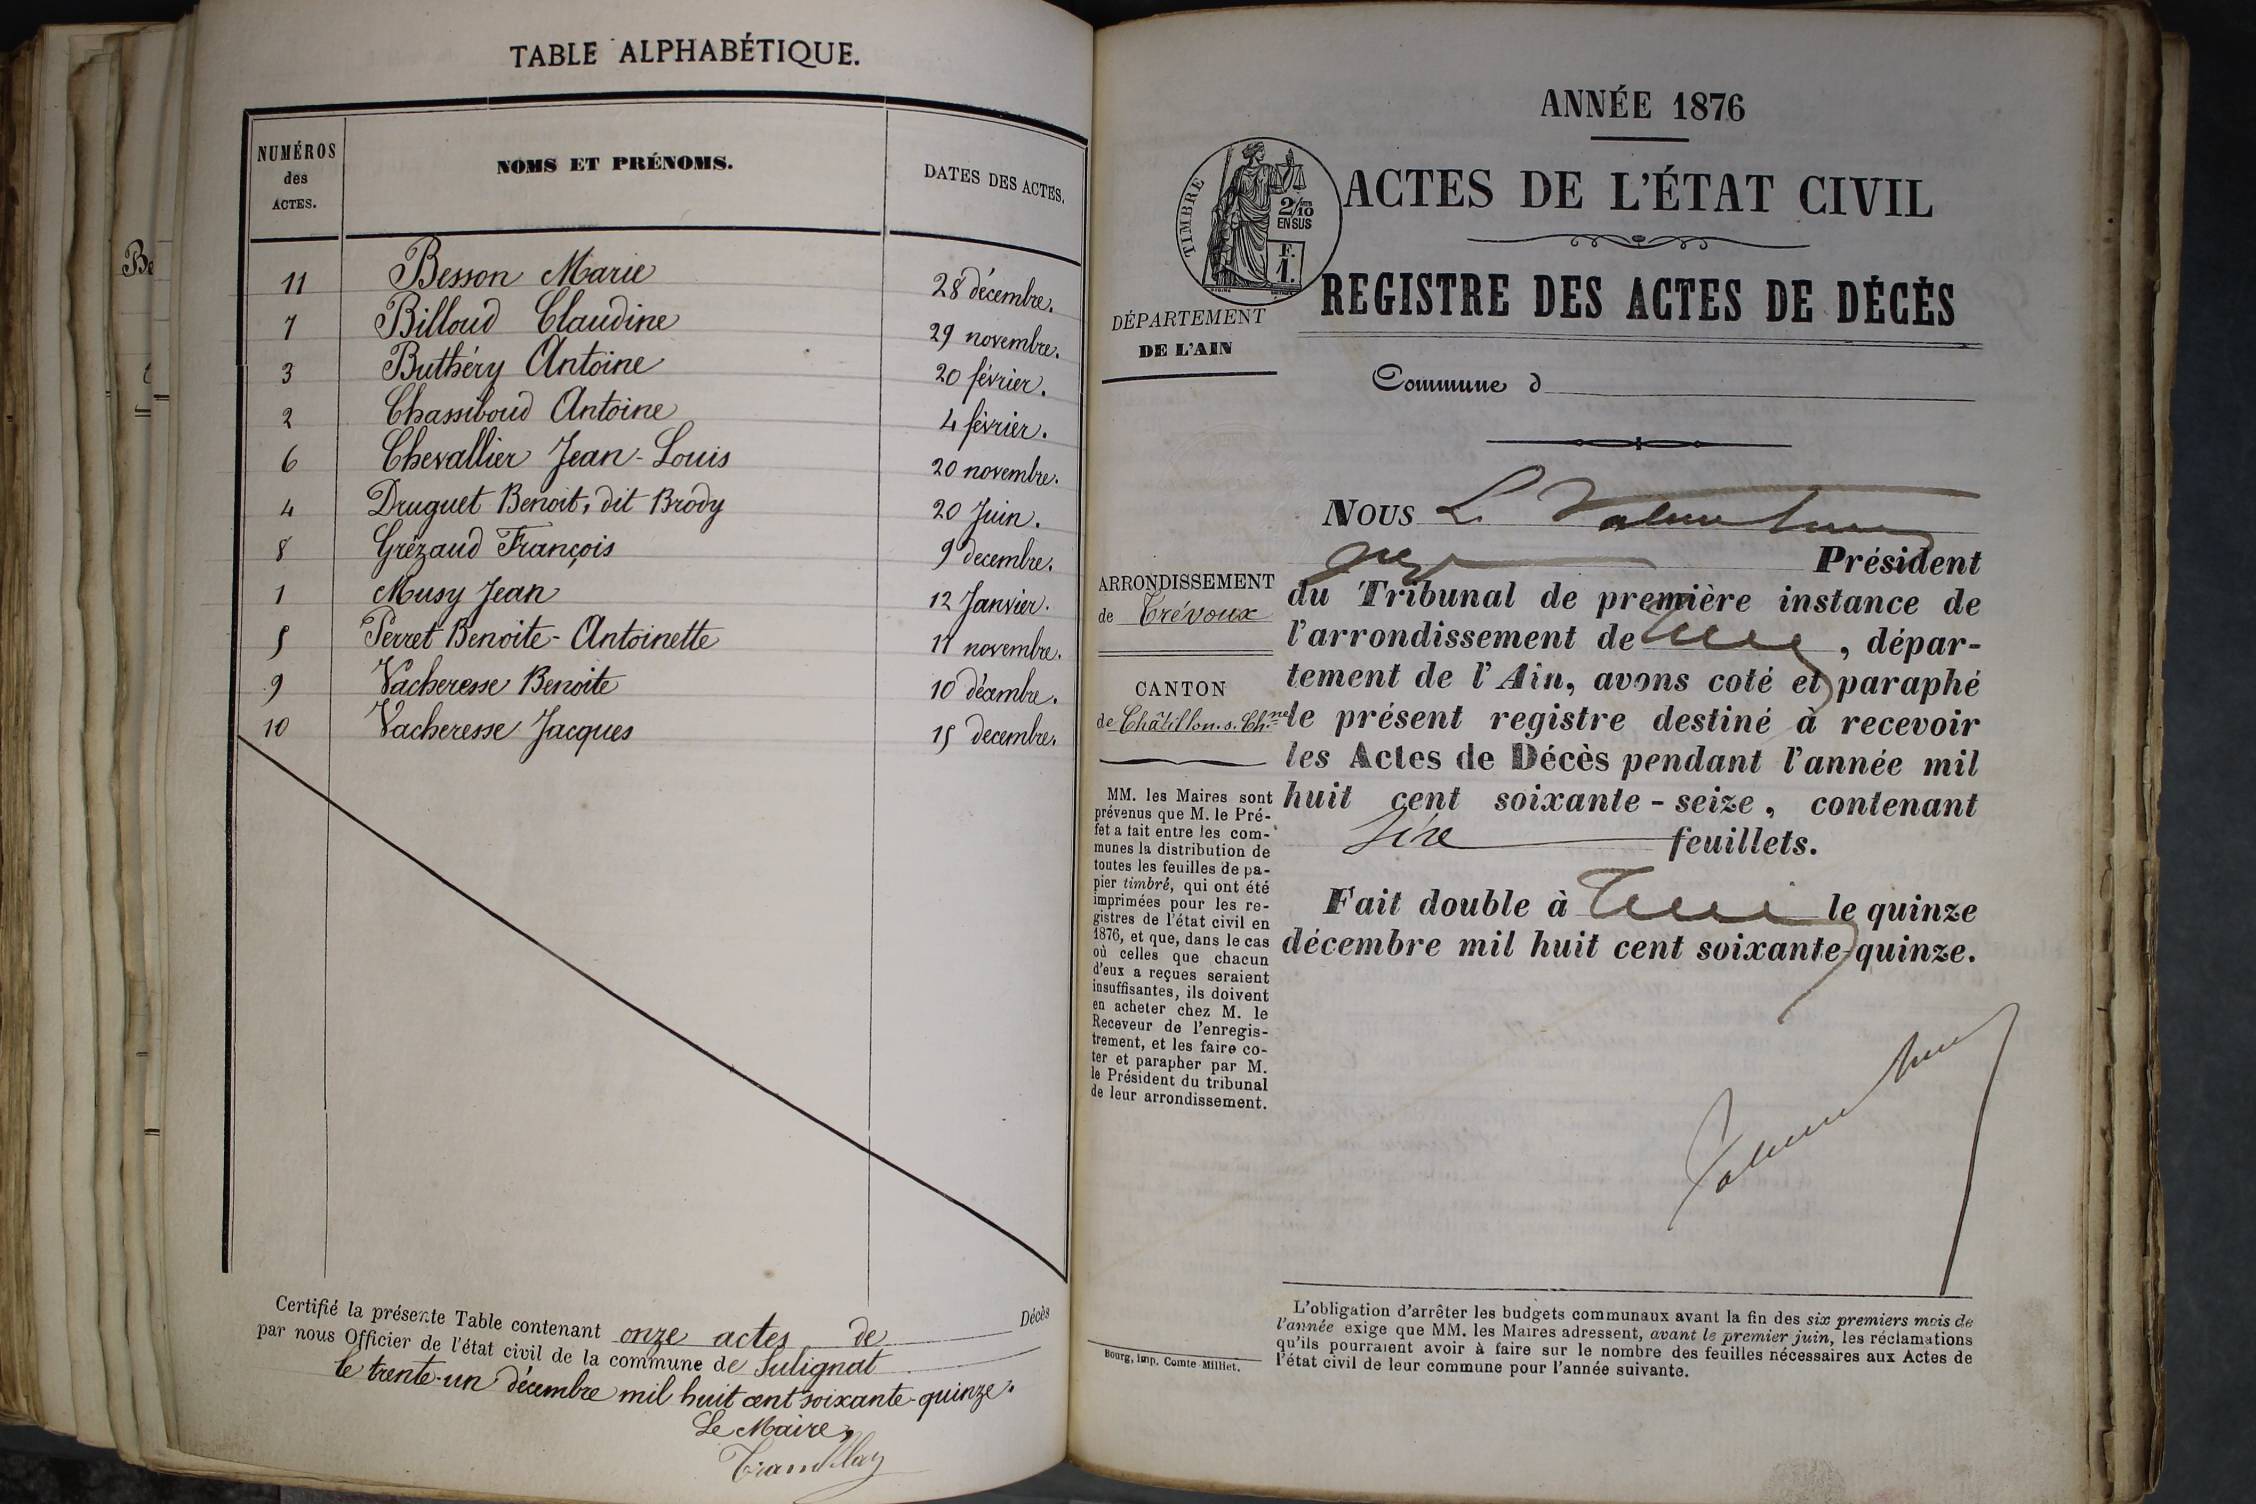 TABLE ALPHABÉTIQUE.
NUMÉROS des ACTES. NOMS ET PRÉNOMS. DATES DES ACTES.
11 Besson Marie 28 décembre.
7 Billoud Claudine 29 novembre.
3 Buthéry Antoine 20 février.
2 Chassiboud Antoine 4 février.
6 Chevallier Jean-Louis 20 novembre.
4 Druguet Benoit, dit Brody 20 Juin.
8 Grézaud François 9 decembre.
1 Musy Jean 12 Janvier.
5 Perret Benoite-Antoinette 11 novembre.
9 Vacheresse Benoite 10 décembre.
10 Vacheresse Jacques 15 decembre.
Certifié la présente Table contenant onze actes de Décès
par nous Officier de l'état civil de la commune de Sulignat
le trente-un décembre mil huit cent soixante-quinze.
Le Maire,
Tramblay
Be
ANNÉE 1876
ACTES DE L'ÉTAT CIVIL
TIMBRE
2/10
EN SUS
F.
1.
REGISTRE DES ACTES DE DÉCÈS
DÉPARTEMENT
DE L'AIN
Commune d
ARRONDISSEMENT
de Trévoux
CANTON
de Châtillon.s.Ch.ne
MM. les Maires sont
prévenus que M. le Pré-
fet a fait entre les com-
munes la distribution de
toutes les feuilles de pa-
pier timbré, qui ont été
imprimées pour les re-
gistres de l'état civil en
1876, et que, dans le cas
où celles que chacun
d'eux a reçues seraient
insuffisantes, ils doivent
en acheter chez M. le
Receveur de l'enregis-
trement, et les faire co-
ter et parapher par M.
le Président du tribunal
de leur arrondissement.
Bourg, imp. Comte-Milliet.
NOUS L.
Président
du Tribunal de première instance de
l'arrondissement de , dépar-
tement de l'Ain, avons coté et paraphé
le présent registre destiné à recevoir
les Actes de Décès pendant l'année mil
huit cent soixante-seize, contenant
feuillets.
Fait double à le quinze
décembre mil huit cent soixante-quinze.
L'obligation d'arrêter les budgets communaux avant la fin des six premiers mois de
l'année exige que MM. les Maires adressent, avant le premier juin, les réclamations
qu'ils pourraient avoir à faire sur le nombre des feuilles nécessaires aux Actes de
l'état civil de leur commune pour l'année suivante.